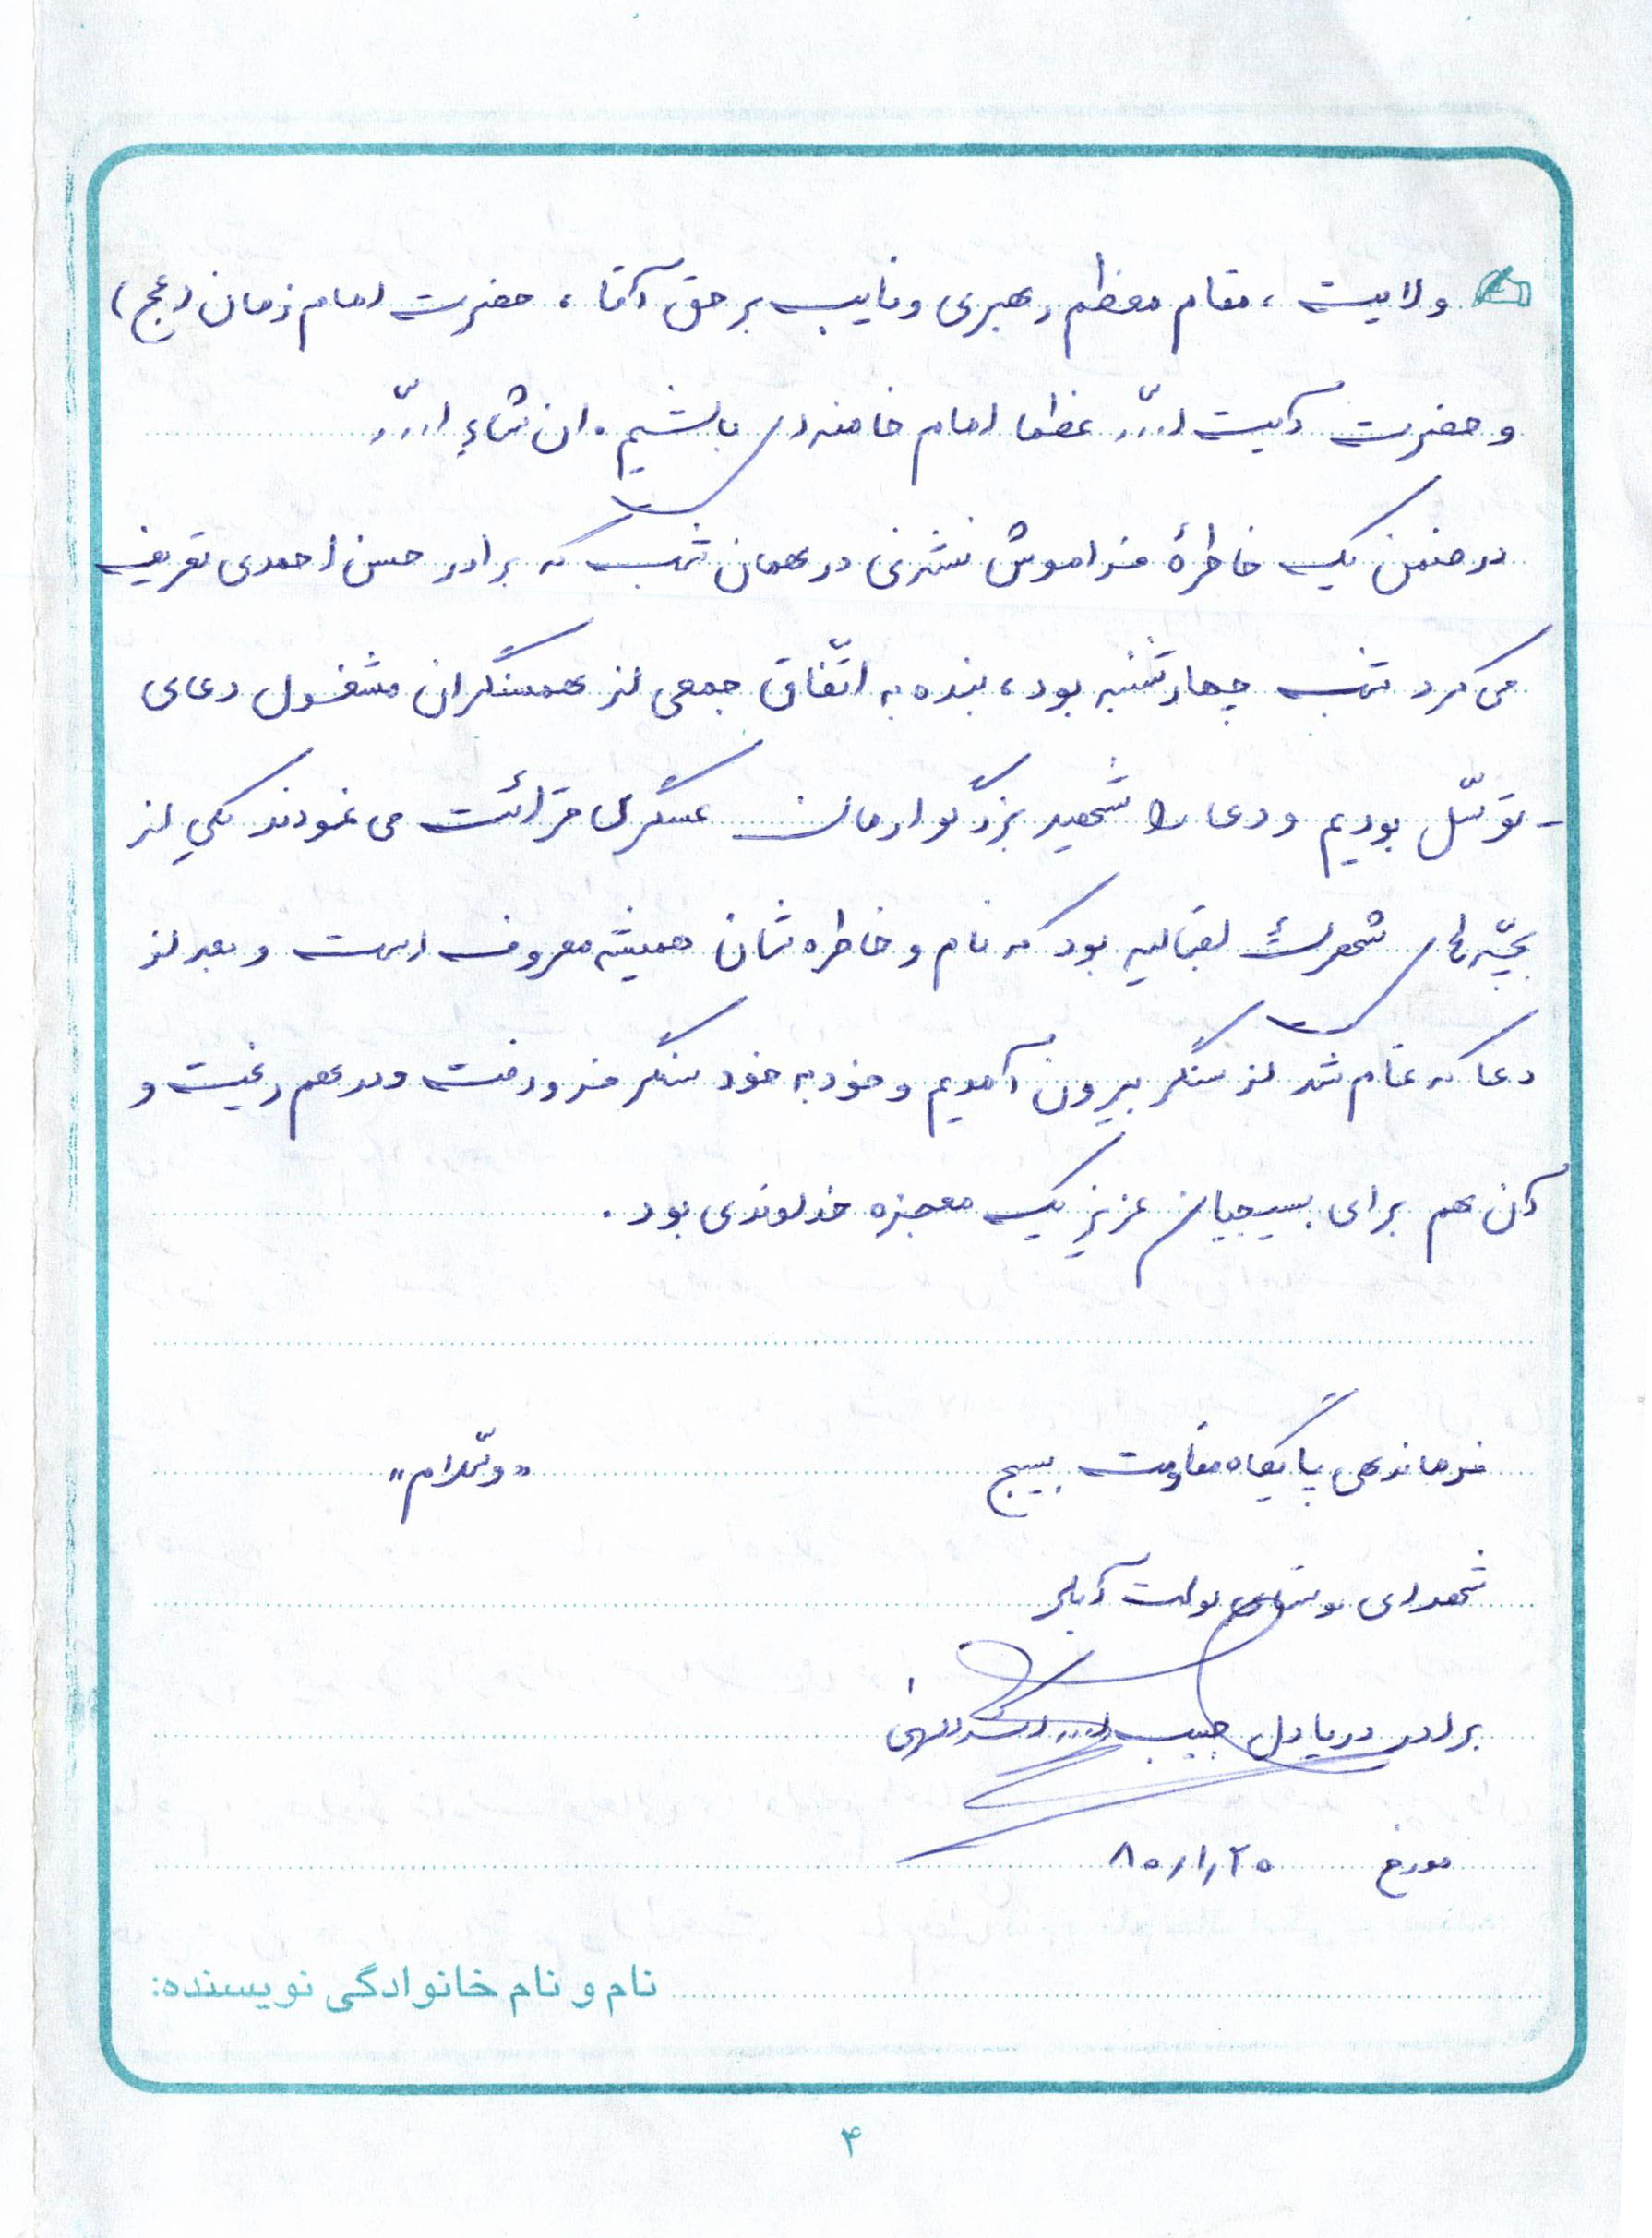 ولایت، مقام معظم رهبری و نایب بر حق آقا، حضرت امام زمان (عج)
و حضرت آیت ا... عظما امام خامنه‌ای باشیم. ان شاءِ ا...
در ضمن یک خاطرهٔ فراموش نشدنی در همان شب که برادر حسن احمدی تعریف
می کرد شب چهارشنبه بود، بنده به اتّفاق جمعی از همسنگران مشغول دعای
توسّل بودیم و دعا را شهید بزرگوارمان عسگری قرائت می نمودند یکی از
بچّه های شهرک بود که نام و خاطره شان همیشه معروف است و بعد از
دعا که تمام شد از سنگر بیرون آمدیم و خود به خود سنگر فرو رفت و در هم ریخت و
آن هم برای بسیجیان عزیز یک معجزه خداوندی بود.
فرماندهی پایگاه مقاومت بسیج
«والسّلام»
شهدای روستای
برادر دریادل حبیب ا...
مورخ ۸۰/۱/۲۰
نام و نام خانوادگی نویسنده:
۴